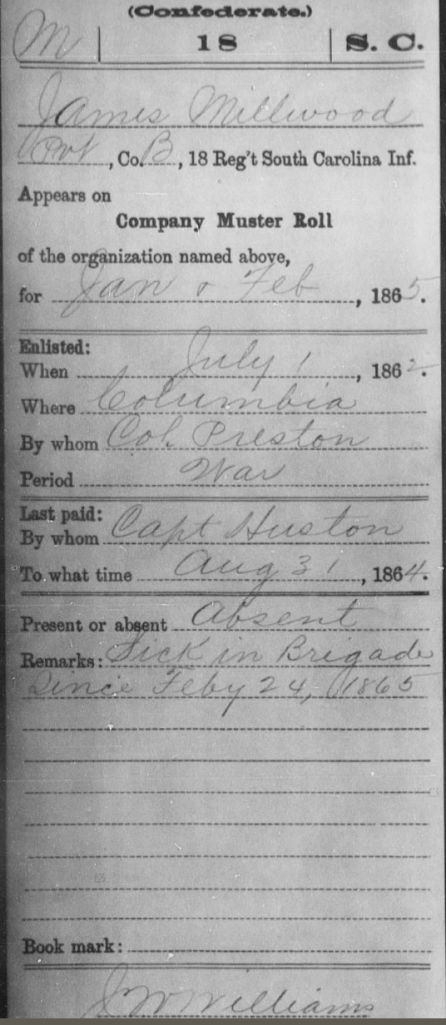 (Confederate.)
M | 18 | S. C.
James Millwood
Pvt, Co. B, 18 Reg't South Carolina Inf.
Appears on
Company Muster Roll
of the organization named above,
for Jan & Feb, 1865.
Enlisted:
When July 1, 1862.
Where Columbia
By whom Col. Preston
Period War
Last paid:
By whom Capt Huston
To what time Aug 31, 1864.
Present or absent Absent
Remarks: Sick in Brigade
Since Feby 24, 1865
Book mark:
J W Williams